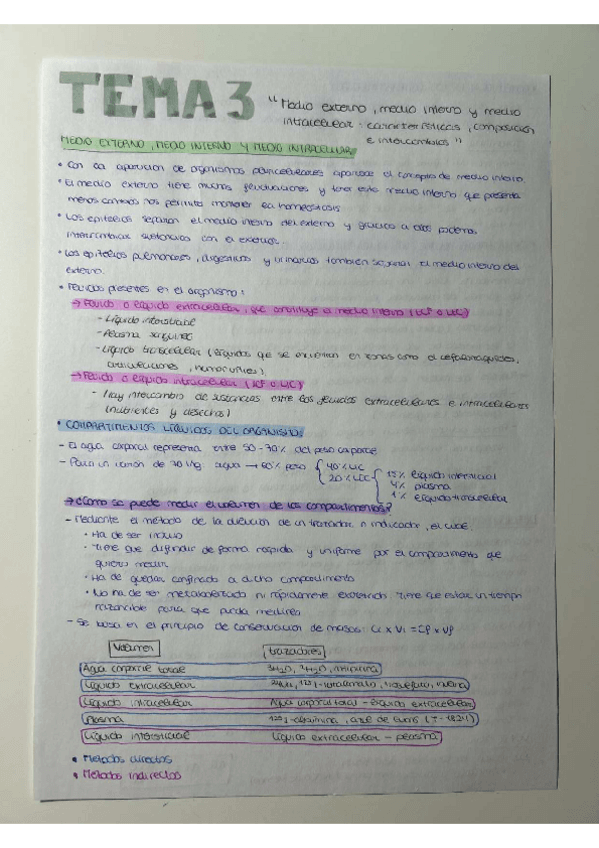 TEMA 3 "Medio externo, medio interno y medio
intracelular: características, composición
e intercambios"
MEDIO EXTERNO, MEDIO INTERNO Y MEDIO INTRACELULAR
• Con la aparición de organismos pluricelulares aparece el concepto de medio interno
• El medio externo tiene muchas fluctuaciones y tener este medio interno que presenta
menos cambios nos permite mantener la homeostasis
• Los epitelios separan el medio interno del externo y gracias a ellos podemos
intercambiar sustancias con el exterior.
• Los epitelios pulmonares, digestivos y urinarios también separan el medio interno del
externo.
• Fluidos presentes en el organismo:
→ Fluido o líquido extracelular, que constituye el medio interno (LCF o LEC)
- Líquido intersticial
- Plasma sanguíneo
- Líquido transcelular (líquidos que se encuentran en zonas como el cefalorraquídeo,
articulaciones, humor vítreo).
→ Fluido o líquido intracelular (LCF o LIC)
- Hay intercambio de sustancias entre los fluidos extracelulares e intracelulares
(nutrientes y desechos)
• COMPARTIMENTOS LÍQUIDOS DEL ORGANISMO:
- El agua corporal representa entre 50-70% del peso corporal
- Para un varón de 70 kg agua → 60% peso { 40% LIC
20% LEC { 15% líquido intersticial
4% plasma
1% líquido transcelular
→ ¿Cómo se puede medir el volumen de los compartimentos?
- Mediante el método de la dilución de un trazador o indicador, el cual:
• Ha de ser inocuo
• Tiene que difundir de forma rápida y uniforme por el compartimento que
quiero medir
• Ha de quedar confinado a dicho compartimento
• No ha de ser metabolizado ni rápidamente excretado tiene que estar un tiempo
razonable para que pueda medirlo
- Se basa en el principio de conservación de masas: Ci x Vi = Cf x Vf
Volumen trazadores
Agua corporal total 3H2O, 2H2O, antipirina
Líquido extracelular 24Na, 125I-iotalamato, tiosulfato, inulina
Líquido intracelular Agua corporal total - líquido extracelular
Plasma 125I-albúmina, azul de Evans (T-1824)
Líquido intersticial Líquido extracelular - plasma
• Métodos directos
• Métodos indirectos